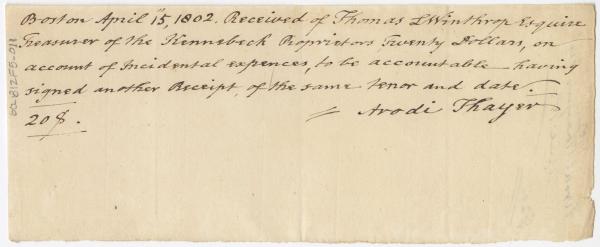 Boston April 15, 1802. Received of Thomas L Winthrop Esquire
Treasurer of the Kennebeck Proprietors Twenty Dollars, on
account of Incidental expences, to be accountable having
signed another Receipt of the same tenor and date.
20$. Arodi Thayer